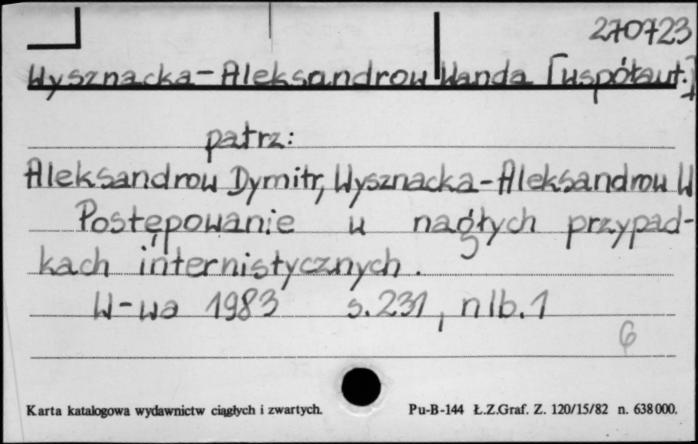 270723
Wysznacka-Aleksandrow Wanda [współaut.]
patrz:
Aleksandrow Dymitr, Wysznacka-Aleksandrow W
Postępowanie w nagłych przypad-
kach internistycznych.
W-wa 1983 s.231, nlb.1
6
Karta katalogowa wydawnictw ciągłych i zwartych. Pu-B-144 Ł.Z.Graf. Z. 120/15/82 n. 638000.